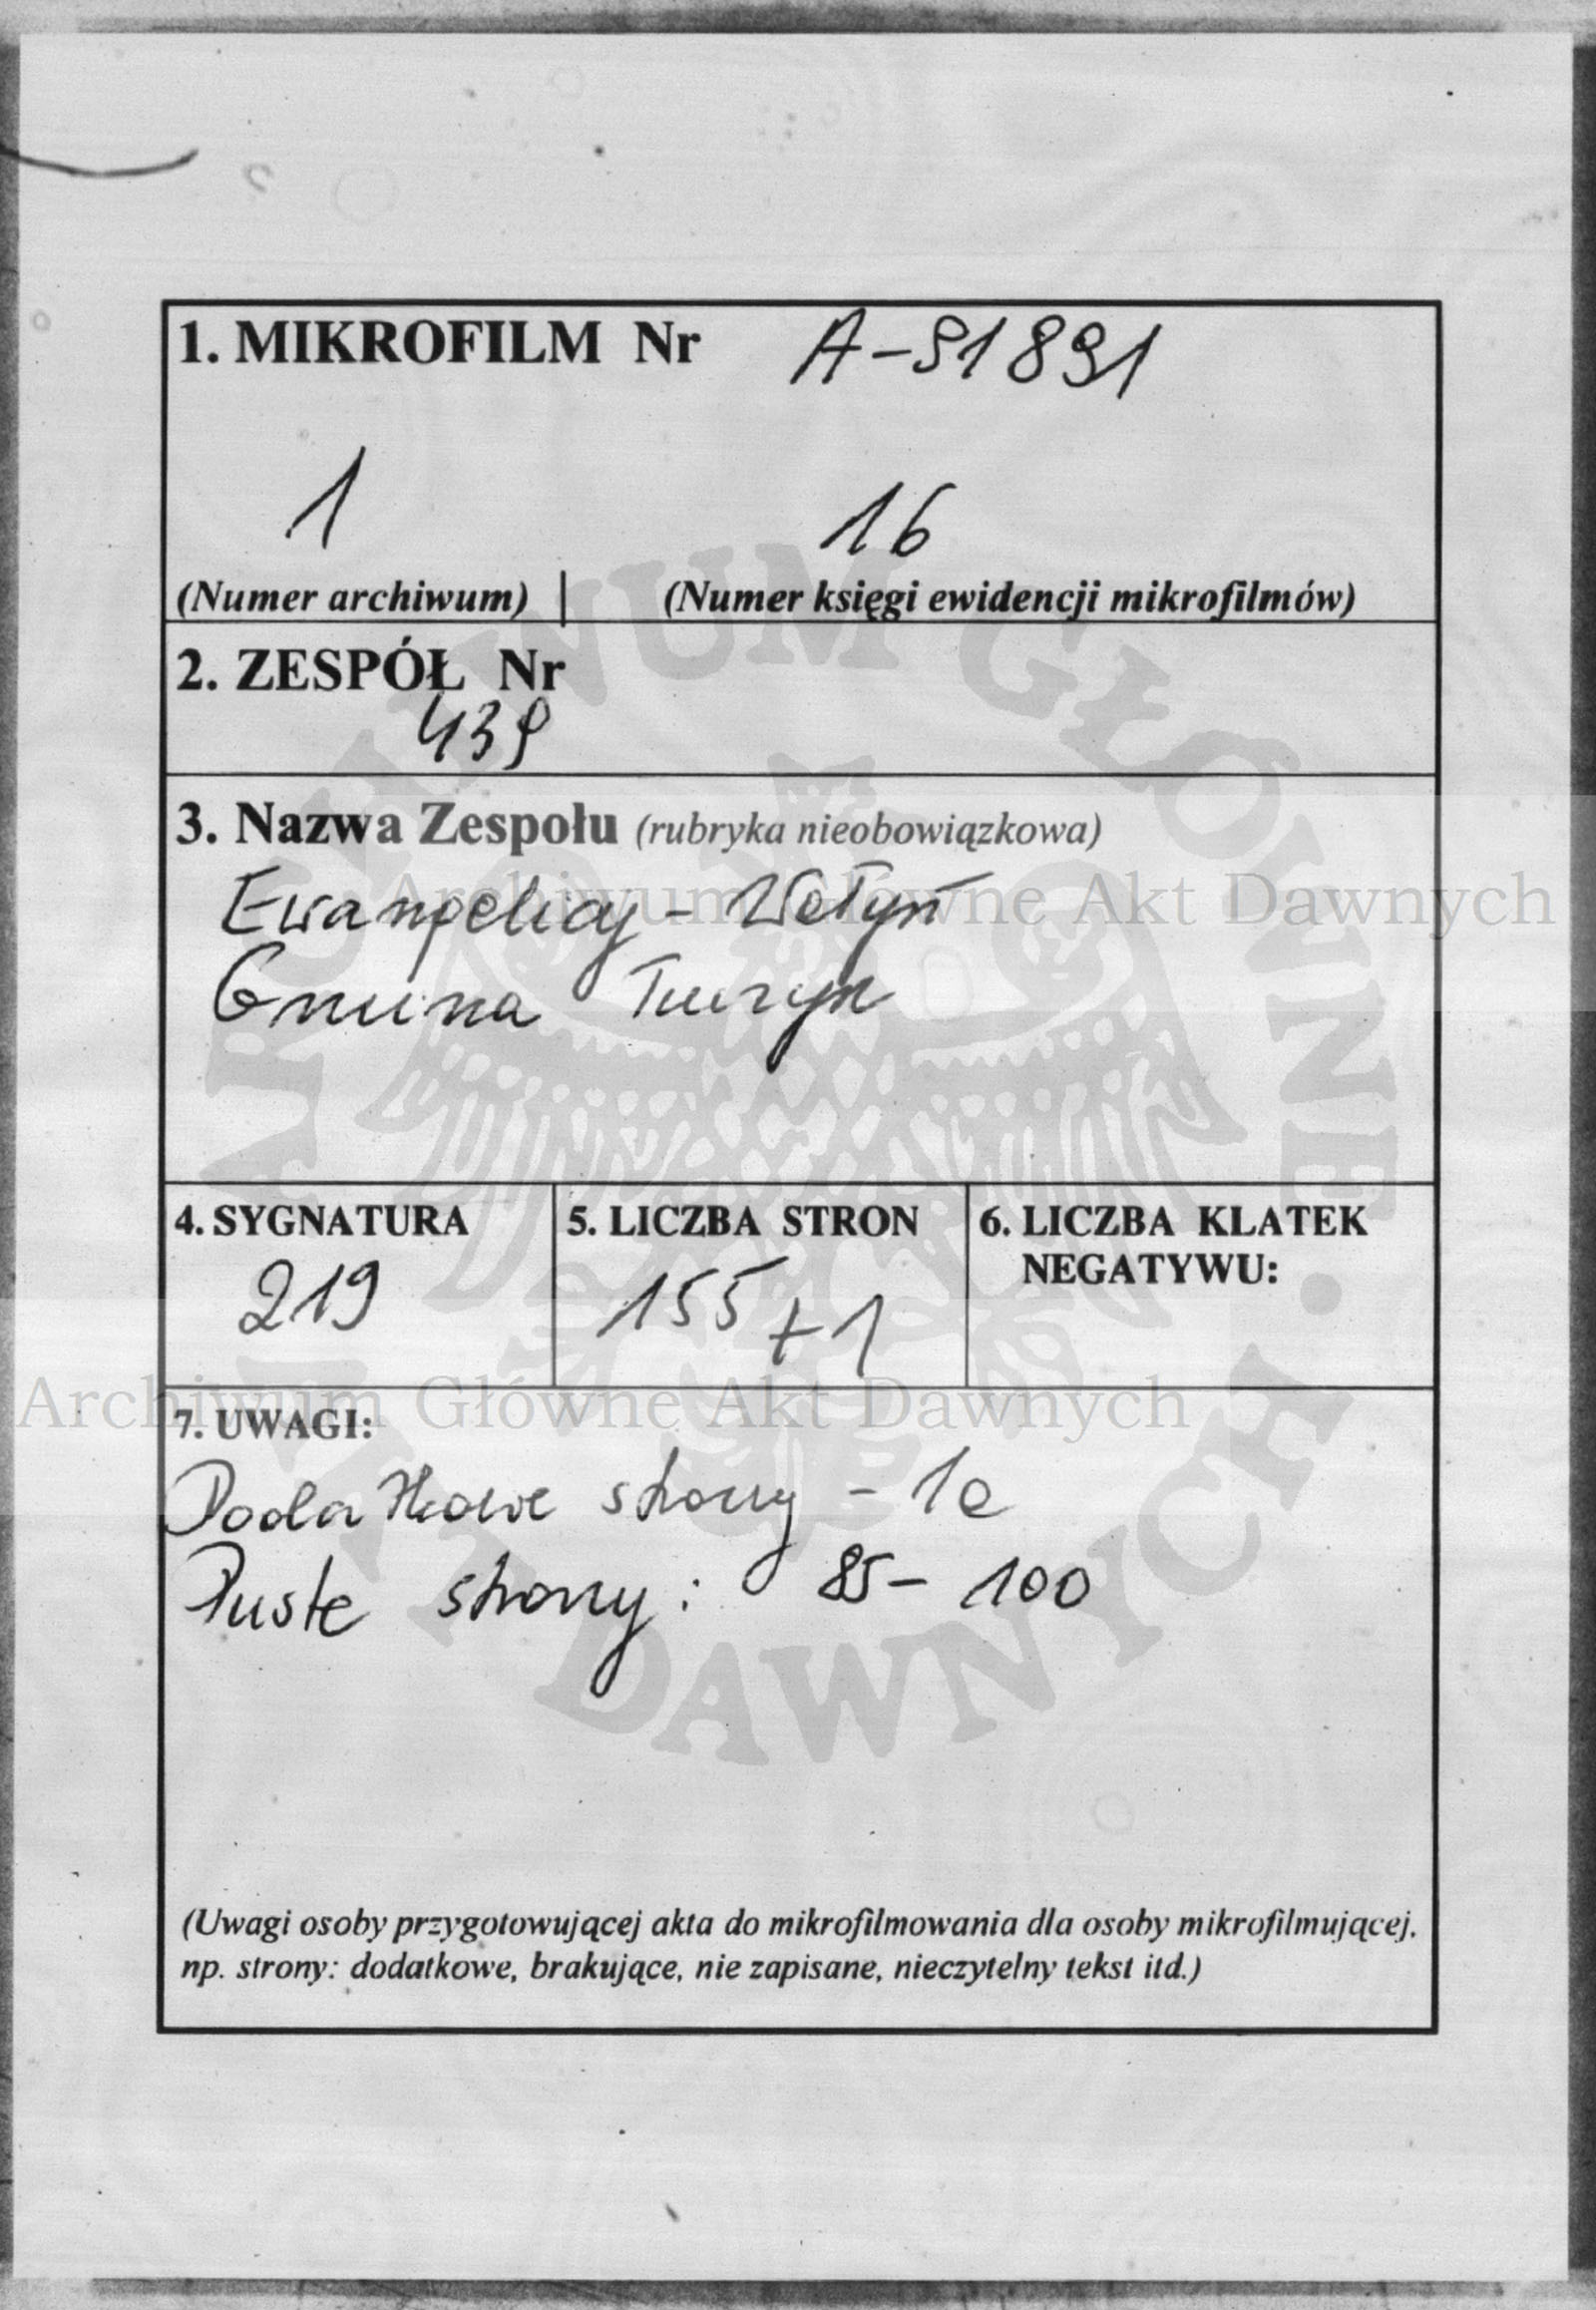 1. MIKROFILM Nr A-91891
1 16
(Numer archiwum) | (Numer księgi ewidencji mikrofilmów)
2. ZESPÓŁ Nr
439
3. Nazwa Zespołu (rubryka nieobowiązkowa)
Ewangelicy - Wołyń
Gmina Turzysk
4. SYGNATURA 5. LICZBA STRON 6. LICZBA KLATEK
NEGATYWU:
219 155+1
7. UWAGI:
Dodatkowe strony - 1a
Puste strony: 85-100
(Uwagi osoby przygotowującej akta do mikrofilmowania dla osoby mikrofilmującej,
np. strony: dodatkowe, brakujące, nie zapisane, nieczytelny tekst itd.)
Archiwum Główne Akt Dawnych
Archiwum Główne Akt Dawnych
ARCHIWUM GŁÓWNE AKT DAWNYCH